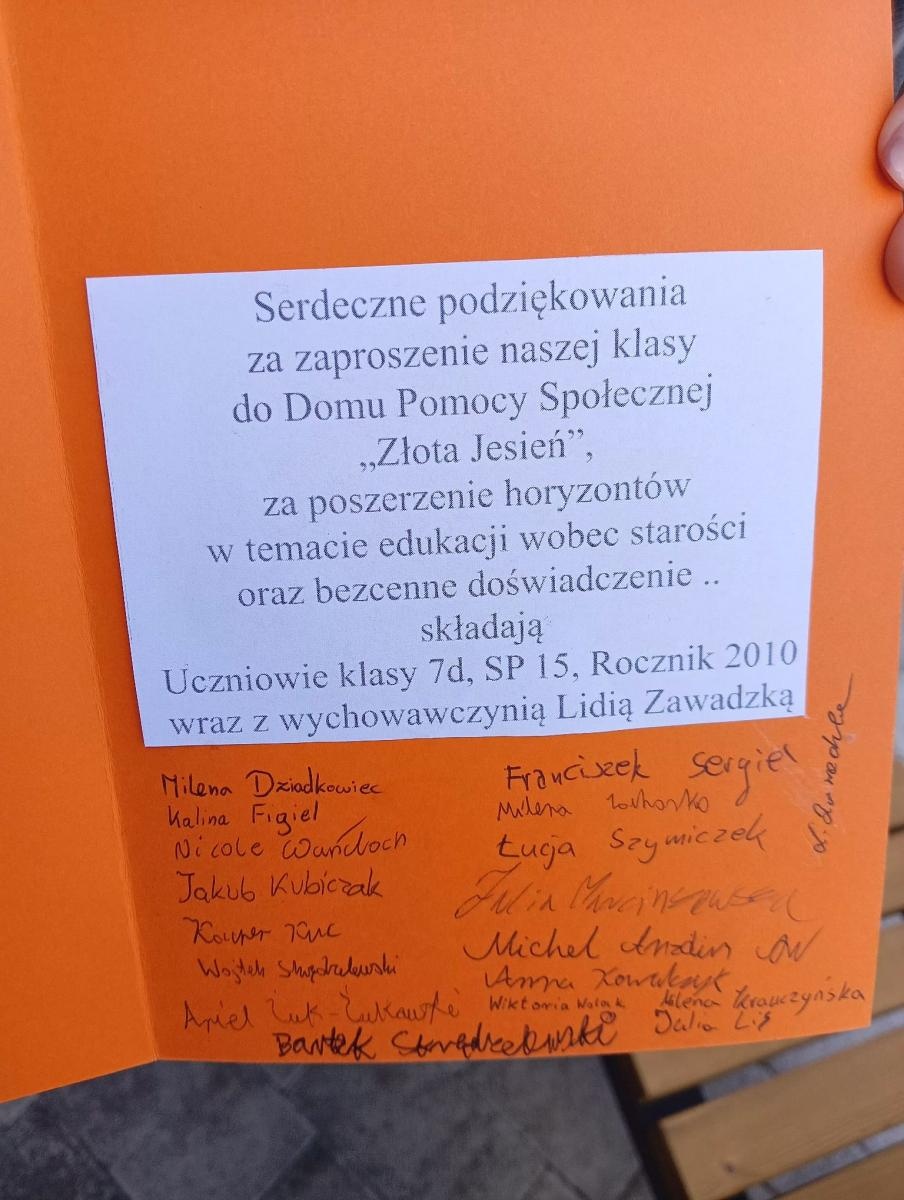 Serdeczne podziękowania
za zaproszenie naszej klasy
do Domu Pomocy Społecznej
„Złota Jesień”,
za poszerzenie horyzontów
w temacie edukacji wobec starości
oraz bezcenne doświadczenie ..
składają
Uczniowie klasy 7d, SP 15, Rocznik 2010
wraz z wychowawczynią Lidią Zawadzką
Milena Dziadkowiec
Kalina Figiel
Nicole Wańdoch
Jakub Kubiczak
Kacper Kuc
Wojtek
Ariel Żuk-Żukawski
Bartek
Franciszek Sergiel
Milena
Łucja Szymiczek
Julia
Michel
Anna Kowalczyk
Wiktoria Walak
Milena Krawczyńska
Julia Liś